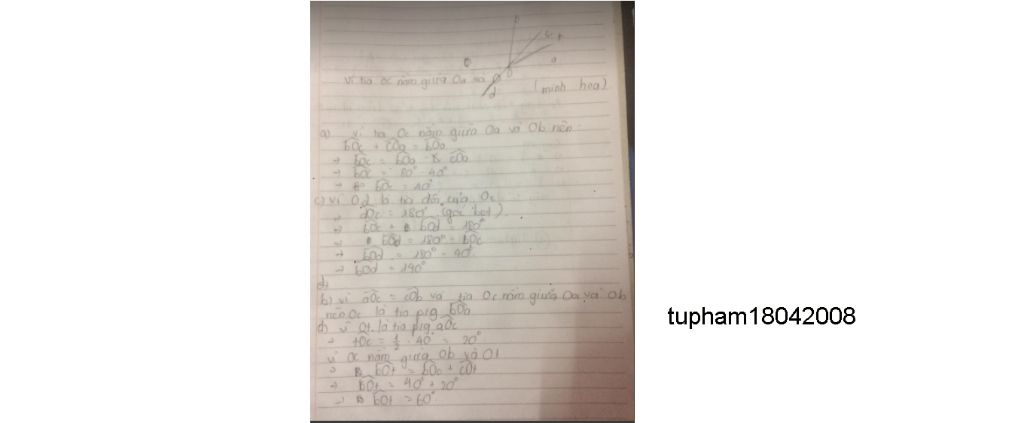 b
c
t
a
O
d
vì tia Oc nằm giữa Oa và
(minh hoạ)
a) vì tia Oc nằm giữa Oa và Ob nên
bOc + cOa = bOa
→ bOc = bOa - cOa
→ bOc = 80° - 40°
→ bOc = 40°
c) vì Od là tia đối của Oc
→ dOc = 180° (góc bẹt)
→ bOc + bOd = 180°
→ bOd = 180° - bOc
→ bOd = 180° - 40°
→ bOd = 140°
d)
b) vì aOc = cOb và tia Oc nằm giữa Oa và Ob
nên Oc là tia p/g bOa
d) vì Ot là tia p/g aOc
→ tOc = 1/2 . 40° = 20°
vì Oc nằm giữa Ob và Ot
→ bOt = bOc + cOt
→ bOt = 40° + 20°
→ bOt = 60°
tupham18042008